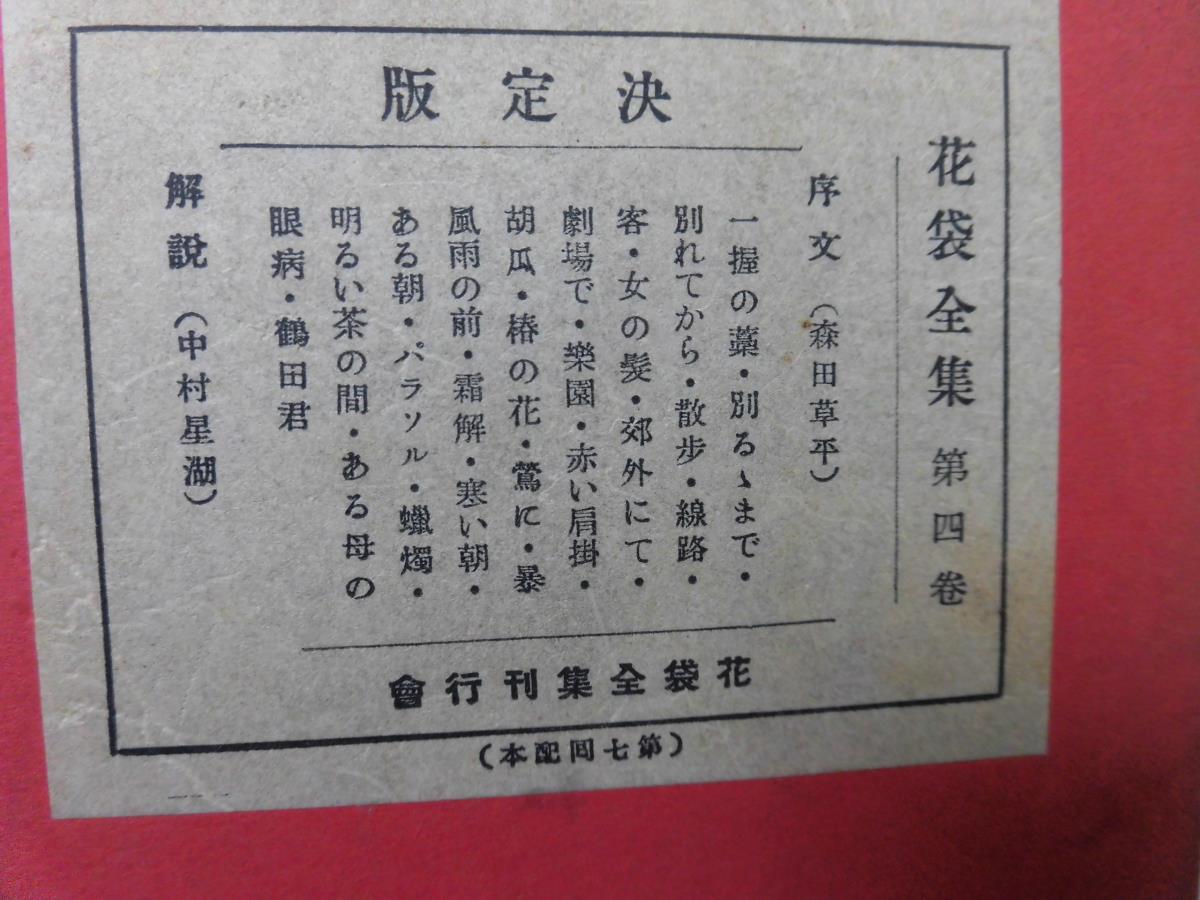 決定版
花袋全集 第四卷
序文(森田草平)
一握の藁・別るゝまで・
別れてから・散步・線路・
客・女の髮・郊外にて・
劇場で・樂園・赤い肩掛・
胡瓜・椿の花・鶯に・暴
風雨の前・霜解・寒い朝・
ある朝・パラソル・蠟燭・
明るい茶の間・ある母の
眼病・鶴田君
解說(中村星湖)
花袋全集刊行會
(第七囘配本)